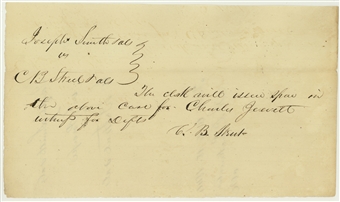 Joseph Smith & als
vs
C B Street & als
The clerk will issue spoa in
the above case for Charles Jewett
witness for Defts
C. B. Street